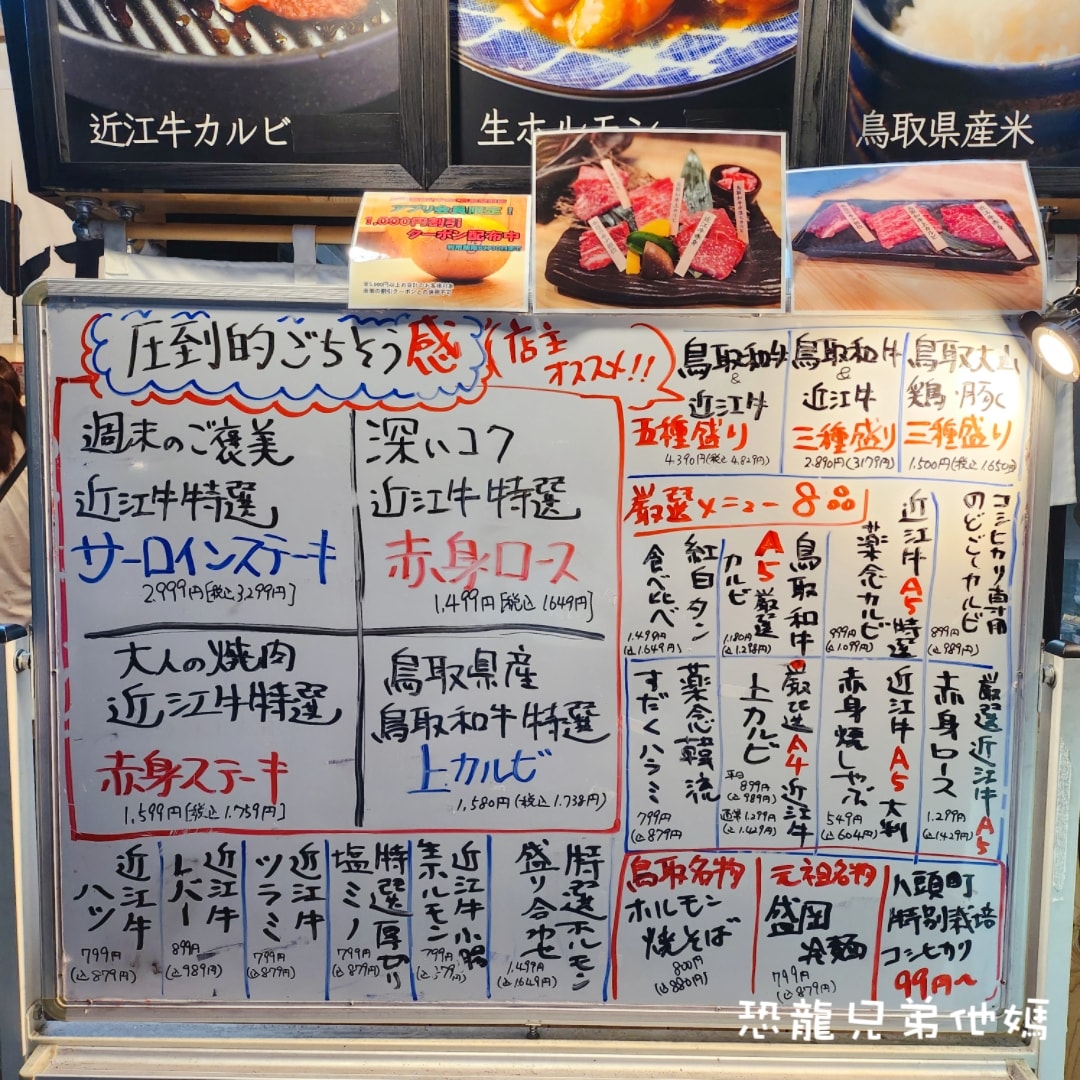 近江牛カルビ
生ホルモン
鳥取県産米
アプリ会員限定!
1,000円割引
クーポン配布中
圧倒的ごちそう感
店主
オススメ!!
週末のご褒美
近江牛特選
サーロインステーキ
2.999円[税込3.299円]
深いコク
近江牛特選
赤身ロース
1.499円[税込1649円]
大人の焼肉
近江牛特選
赤身ステーキ
1.599円[税込1.759円]
鳥取県産
鳥取和牛特選
上カルビ
1.580円(税込1.738円)
鳥取和牛
&
近江牛
五種盛り
4.390円(税込4.829円)
鳥取和牛
&
近江牛
三種盛り
2.890円(3179円)
鳥取大山
鶏・豚
三種盛り
1.500円(税込1650円)
厳選メニュー8品
コシヒカリ専用
のどごしカルビ
899円
(込989円)
近江牛A5特選
薬念カルビ
999円
(込1.099円)
鳥取和牛
A5厳選
カルビ
1.180円
(込1.298円)
紅白タン
食べ比べ
1.499円
(込1.649円)
厳選近江牛A5
赤身ロース
1.299円
(込1429円)
近江牛A5大判
赤身焼しゃぶ
549円
(込604円)
厳選A4近江牛
上カルビ
平日
899円
(込989円)
週末1.299円
(込1.429円)
薬念韓流
すだくハラミ
799円
(込879円)
近江牛
ハツ
799円
(込879円)
近江牛
レバー
899円
(込989円)
近江牛
ツラミ
799円
(込879円)
特選厚切り
塩ミノ
799円
(込879円)
近江牛小腸
生ホルモン
特選ホルモン
盛り合わせ
1.499円
(込1649円)
鳥取名物
ホルモン
焼そば
800円
(込880円)
元祖名物
盛岡
冷麺
799円
(込879円)
八頭町
特別栽培
コシヒカリ
99円〜
恐龍兄弟他媽